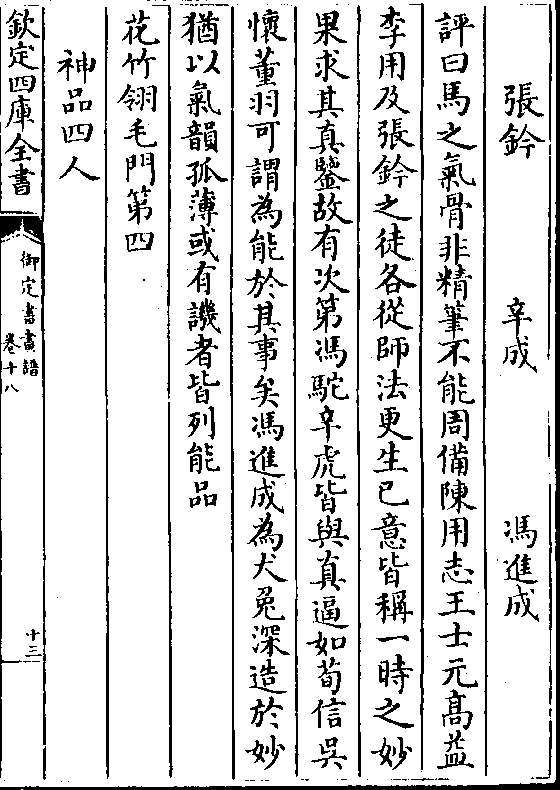 張鈐　辛成　馮進成
評曰馬之氣骨非精筆不能周備陳用志王士元髙益
李用及張鈐之徒各從師法更生已意皆稱一時之妙
果求其真鑒故有次第馮駝辛虎皆與真逼如荀信吳
懷董羽可謂為能於其事矣馮進成為犬兎深造於妙
猶以氣韻孤薄或有譏者皆列能品
花竹翎毛門第四
神品四人
欽定四庫全書
御定書畫譜
卷十八
十三